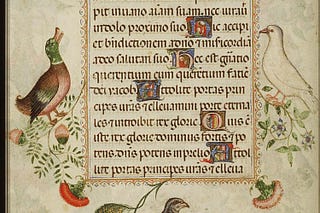 pit in uano aīam suam. nec iurau
in dolo proximo suo Hic accipi
et bn̄dictionem a dn̄o ⁊ misc̄dia
a deo salutari suo Hec est gn̄atio
querentium eum querētium faciē
dei iacob Attolite portas prin
cipes uras ⁊ eleuamini porte eterna
les ⁊ introibit rex glorie Quis ē
iste rex glorie dominus fortis ⁊ po
tens. dn̄s potens in prelio Attol
lite portas principes uras ⁊ eleua